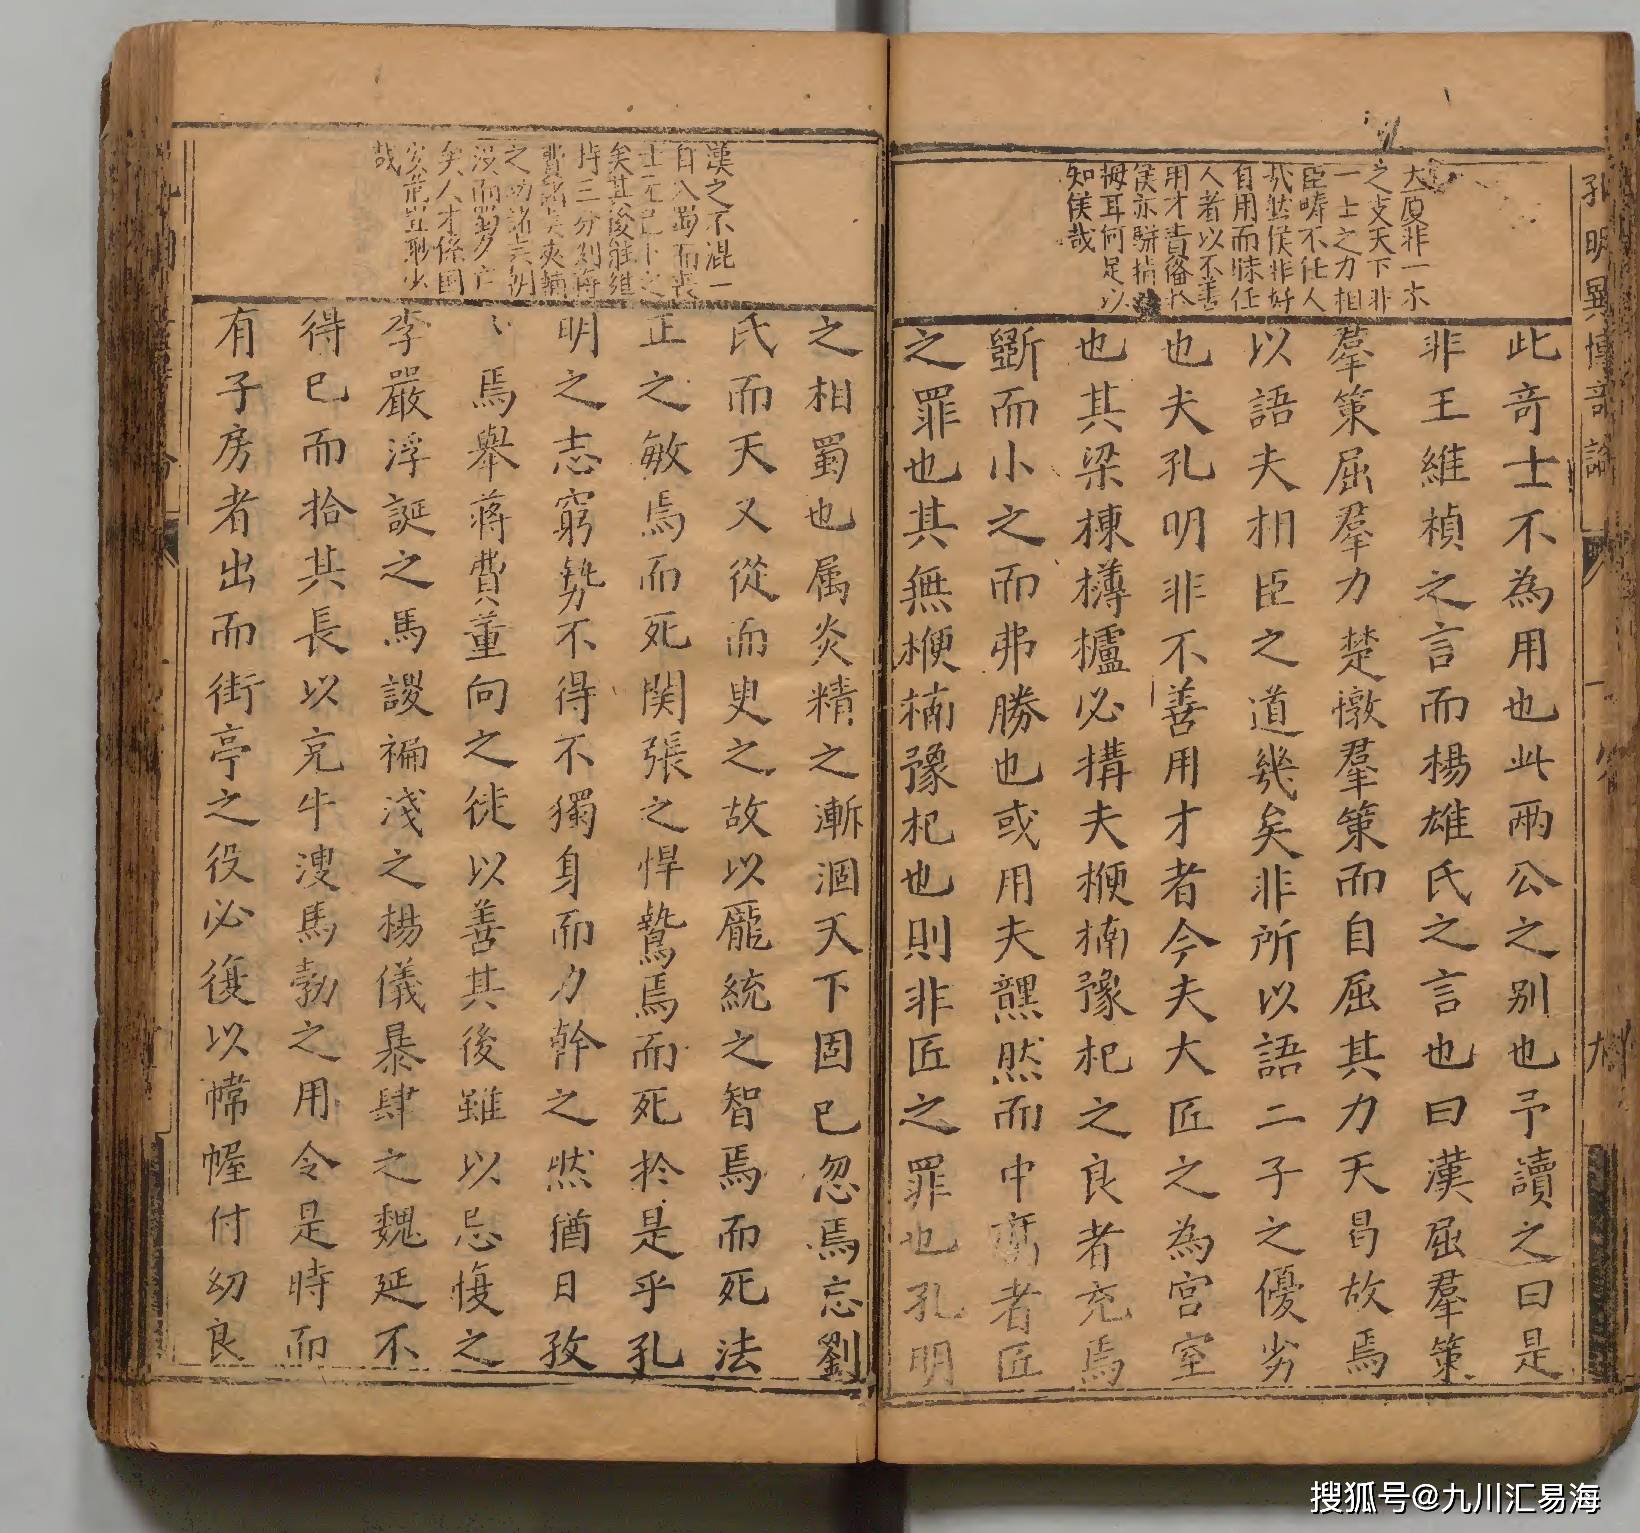 大厦非一木
之支天下非
一士之力相
臣疇不任人
哉然侯非好
自用而昧任
人者以不善
用才責備於
侯亦駢拇
拇耳何足以
知侯哉
此奇士不為用也此兩公之别也予讀之曰是
非王維楨之言而楊雄氏之言也曰漢屈羣策
羣策屈羣力楚憞羣策而自屈其力天曷故焉
以語夫相臣之道幾矣非所以語二子之優劣
也夫孔明非不善用才者今夫大匠之為宮室
也其梁棟欂櫨必搆夫楩楠豫杞之良者充焉
斲而小之而弗勝也或用夫䵎然而中者匠
之罪也其無楩楠豫杞也則非匠之罪也孔明
漢之不混一
自入蜀而喪
士元已卜之
矣其後雖維
持三分則蔣
費諸葛夾輔
之功諸葛朝
沒而蜀夕亡
矣人才係國
家
哉
之相蜀也属炎精之漸涸天下固已忽焉忘劉
氏而天又從而叟之故以龐統之智焉而死法
正之敏焉而死関張之悍鷙焉而死於是乎孔
明之志窮勢不得不獨身而力幹之然猶日孜
孜焉舉蔣費董向之徒以善其後雖以忌愎之
李嚴浮誕之馬謖褊淺之楊儀暴肆之魏延不
得已而拾其長以充牛溲馬勃之用令是時而
有子房者出而街亭之役必復以幃幄付幼良
孔明異傳奇論
九